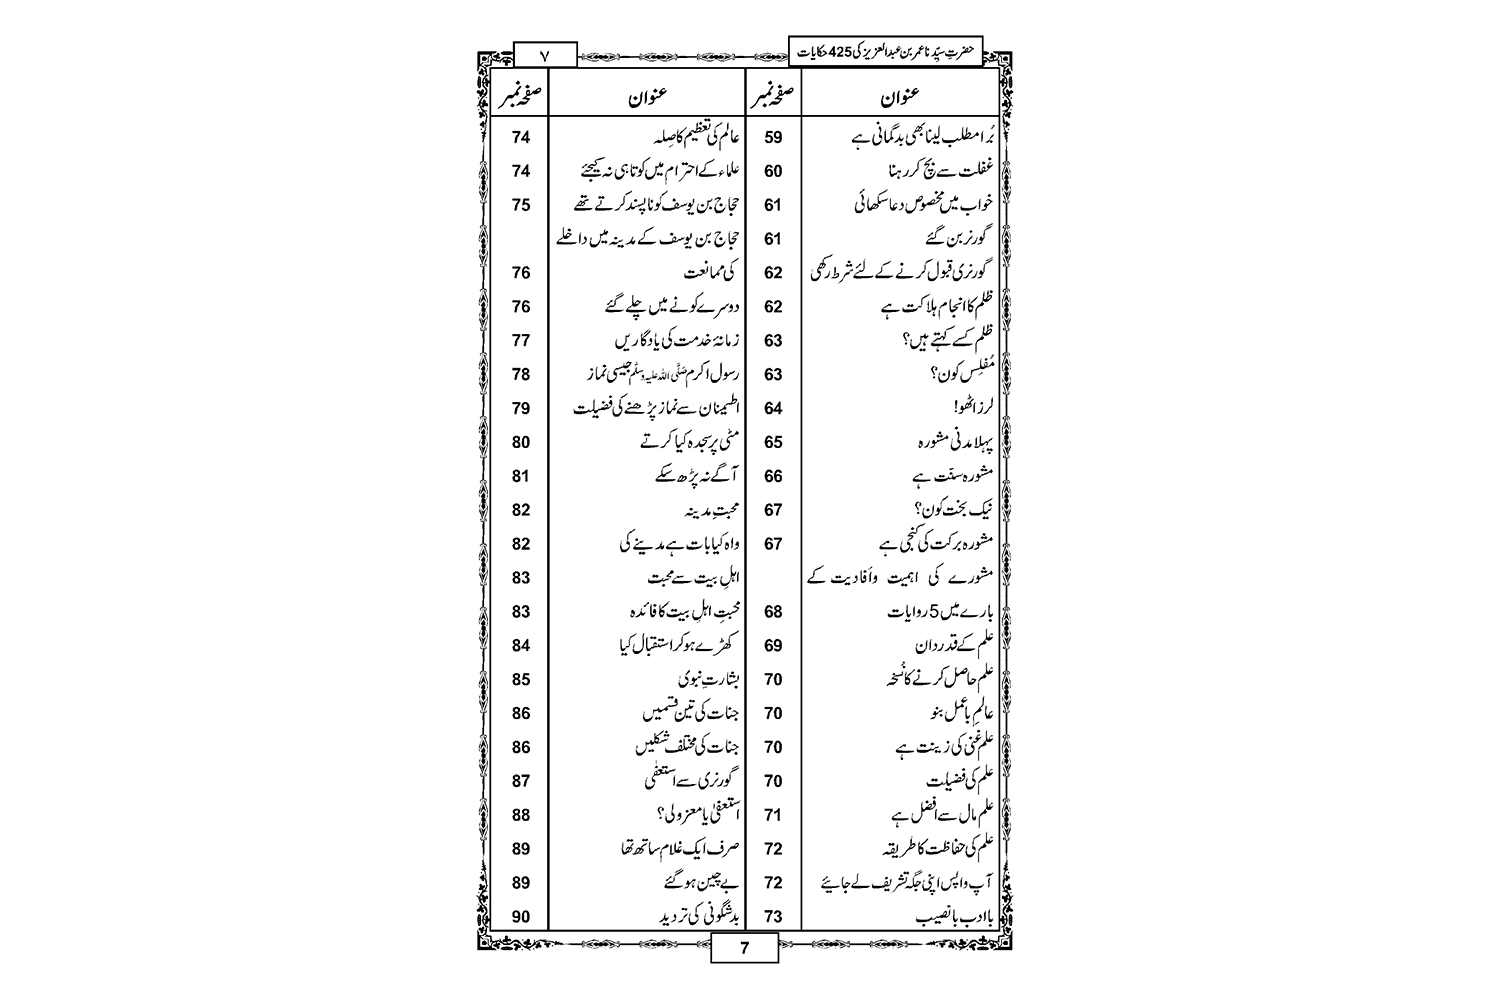 حضرتِ سیِّدنا عمر بن عبدالعزیز کی 425 حکایات
۷
عنوان صفحہ نمبر
بُرا مطلب لینا بھی بدگمانی ہے 59
غفلت سے بچ کر رہنا 60
خواب میں مخصوص دعا سکھائی 61
گورنر بن گئے 61
گورنری قبول کرنے کے لئے شرط رکھی 62
ظلم کا انجام ہلاکت ہے 62
ظلم کسے کہتے ہیں؟ 63
مُفلِس کون؟ 63
لرز اٹھو! 64
پہلا مدنی مشورہ 65
مشورہ سنّت ہے 66
نیک بخت کون؟ 67
مشورہ برکت کی کنجی ہے 67
مشورے کی اہمیت وافادیت کے
بارے میں 5 روایات 68
علم کے قدردان 69
علم حاصل کرنے کا نُسخہ 70
عالمِ باعمل بنو 70
علم غنی کی زینت ہے 70
علم کی فضیلت 70
علم مال سے افضل ہے 71
علم کی حفاظت کا طریقہ 72
آپ واپس اپنی جگہ تشریف لے جائیے 72
باادب بانصیب 73
عنوان صفحہ نمبر
عالم کی تعظیم کا صِلہ 74
علماء کے احترام میں کوتاہی نہ کیجئے 74
حجاج بن یوسف کو ناپسند کرتے تھے 75
حجاج بن یوسف کے مدینہ میں داخلے
کی ممانعت 76
دوسرے کونے میں چلے گئے 76
زمانۂ خدمت کی یادگاریں 77
رسول اکرم صلَّی اللہ علیہ وسلَّم جیسی نماز 78
اطمینان سے نماز پڑھنے کی فضیلت 79
مٹی پر سجدہ کیا کرتے 80
آگے نہ پڑھ سکے 81
محبتِ مدینہ 82
واہ کیا بات ہے مدینے کی 82
اہلِ بیت سے محبت 83
محبتِ اہلِ بیت کا فائدہ 83
کھڑے ہو کر استقبال کیا 84
بشارتِ نبوی 85
جنات کی تین قسمیں 86
جنات کی مختلف شکلیں 86
گورنری سے استعفٰی 87
استعفٰی یا معزولی؟ 88
صرف ایک غلام ساتھ تھا 89
بے چین ہو گئے 89
بدشگونی کی تردید 90
7